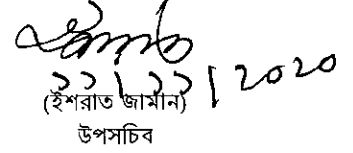 ২২/১১/2020
(ইশরাত জামান)
উপসচিব